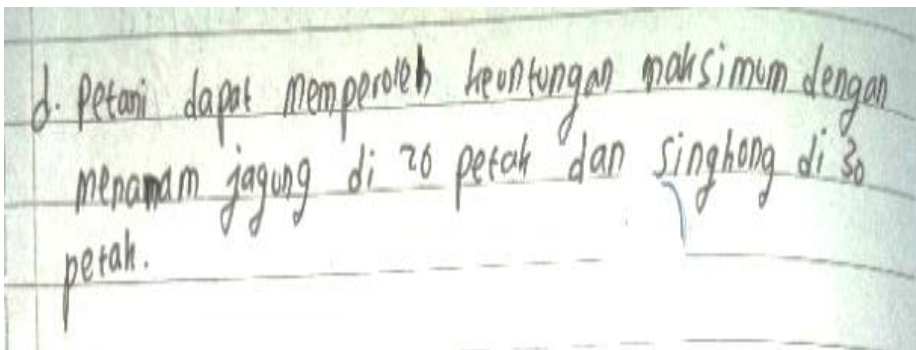 d. Petani dapat memperoleh keuntungan maksimum dengan
menanam jagung di 20 petak dan singkong di 30
petak.